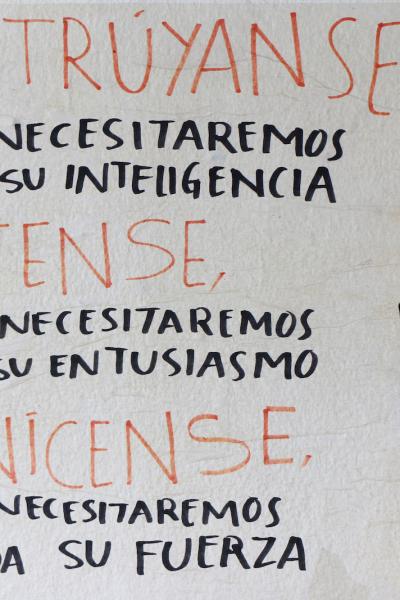 TRÚYANSE
NECESITAREMOS
SU INTELIGENCIA
TENSE,
NECESITAREMOS
SU ENTUSIASMO
NÍCENSE,
NECESITAREMOS
DA SU FUERZA